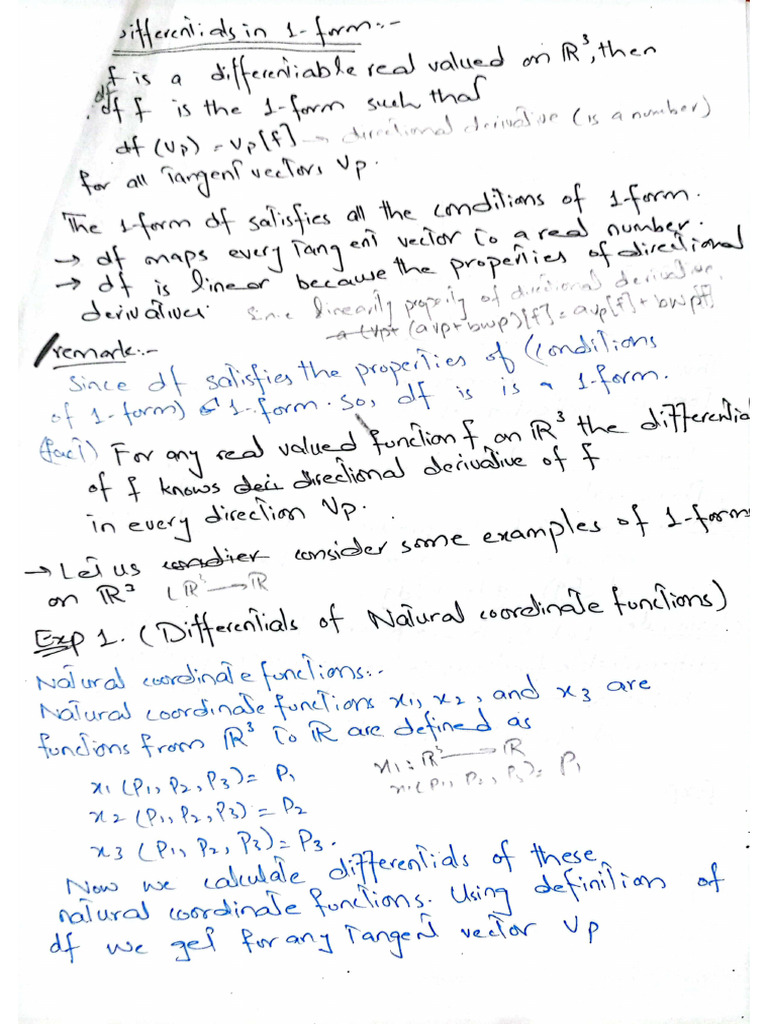 Differentials in 1-form:-
f is a differentiable real valued on ℝ³, then
df
df f is the 1-form such that
df (Vp) = Vp[f] → directional derivative (is a number)
for all Tangent vectors Vp.
The 1-form df satisfies all the conditions of 1-form.
→ df maps every Tangent vector to a real number.
→ df is linear because the properties of directional
derivatives. Since linearity property of directional derivative.
a (Vp+ (avp+bwp)[f] = avp[f]+bwp[f]
remark:-
Since df satisfies the properties of (conditions
of 1-form) 1-form. So, df is is a 1-form.
(fact) For any real valued function f on ℝ³ the differential
of f knows deri directional derivative of f
in every direction Vp.
→ Let us condier consider some examples of 1-forms
on ℝ³ ℝ³ → ℝ
Exp 1. (Differentials of Natural coordinate functions)
Natural coordinate functions:-
Natural coordinate functions x1, x2, and x3 are
functions from ℝ³ to ℝ are defined as
x1 (P1, P2, P3) = P1
x1: ℝ³ → ℝ
x1(P1, P2, P3) = P1
x2 (P1, P2, P3) = P2
x3 (P1, P2, P3) = P3.
Now we calculate differentials of these
natural coordinate functions. Using definition of
df we get for any Tangent vector Vp